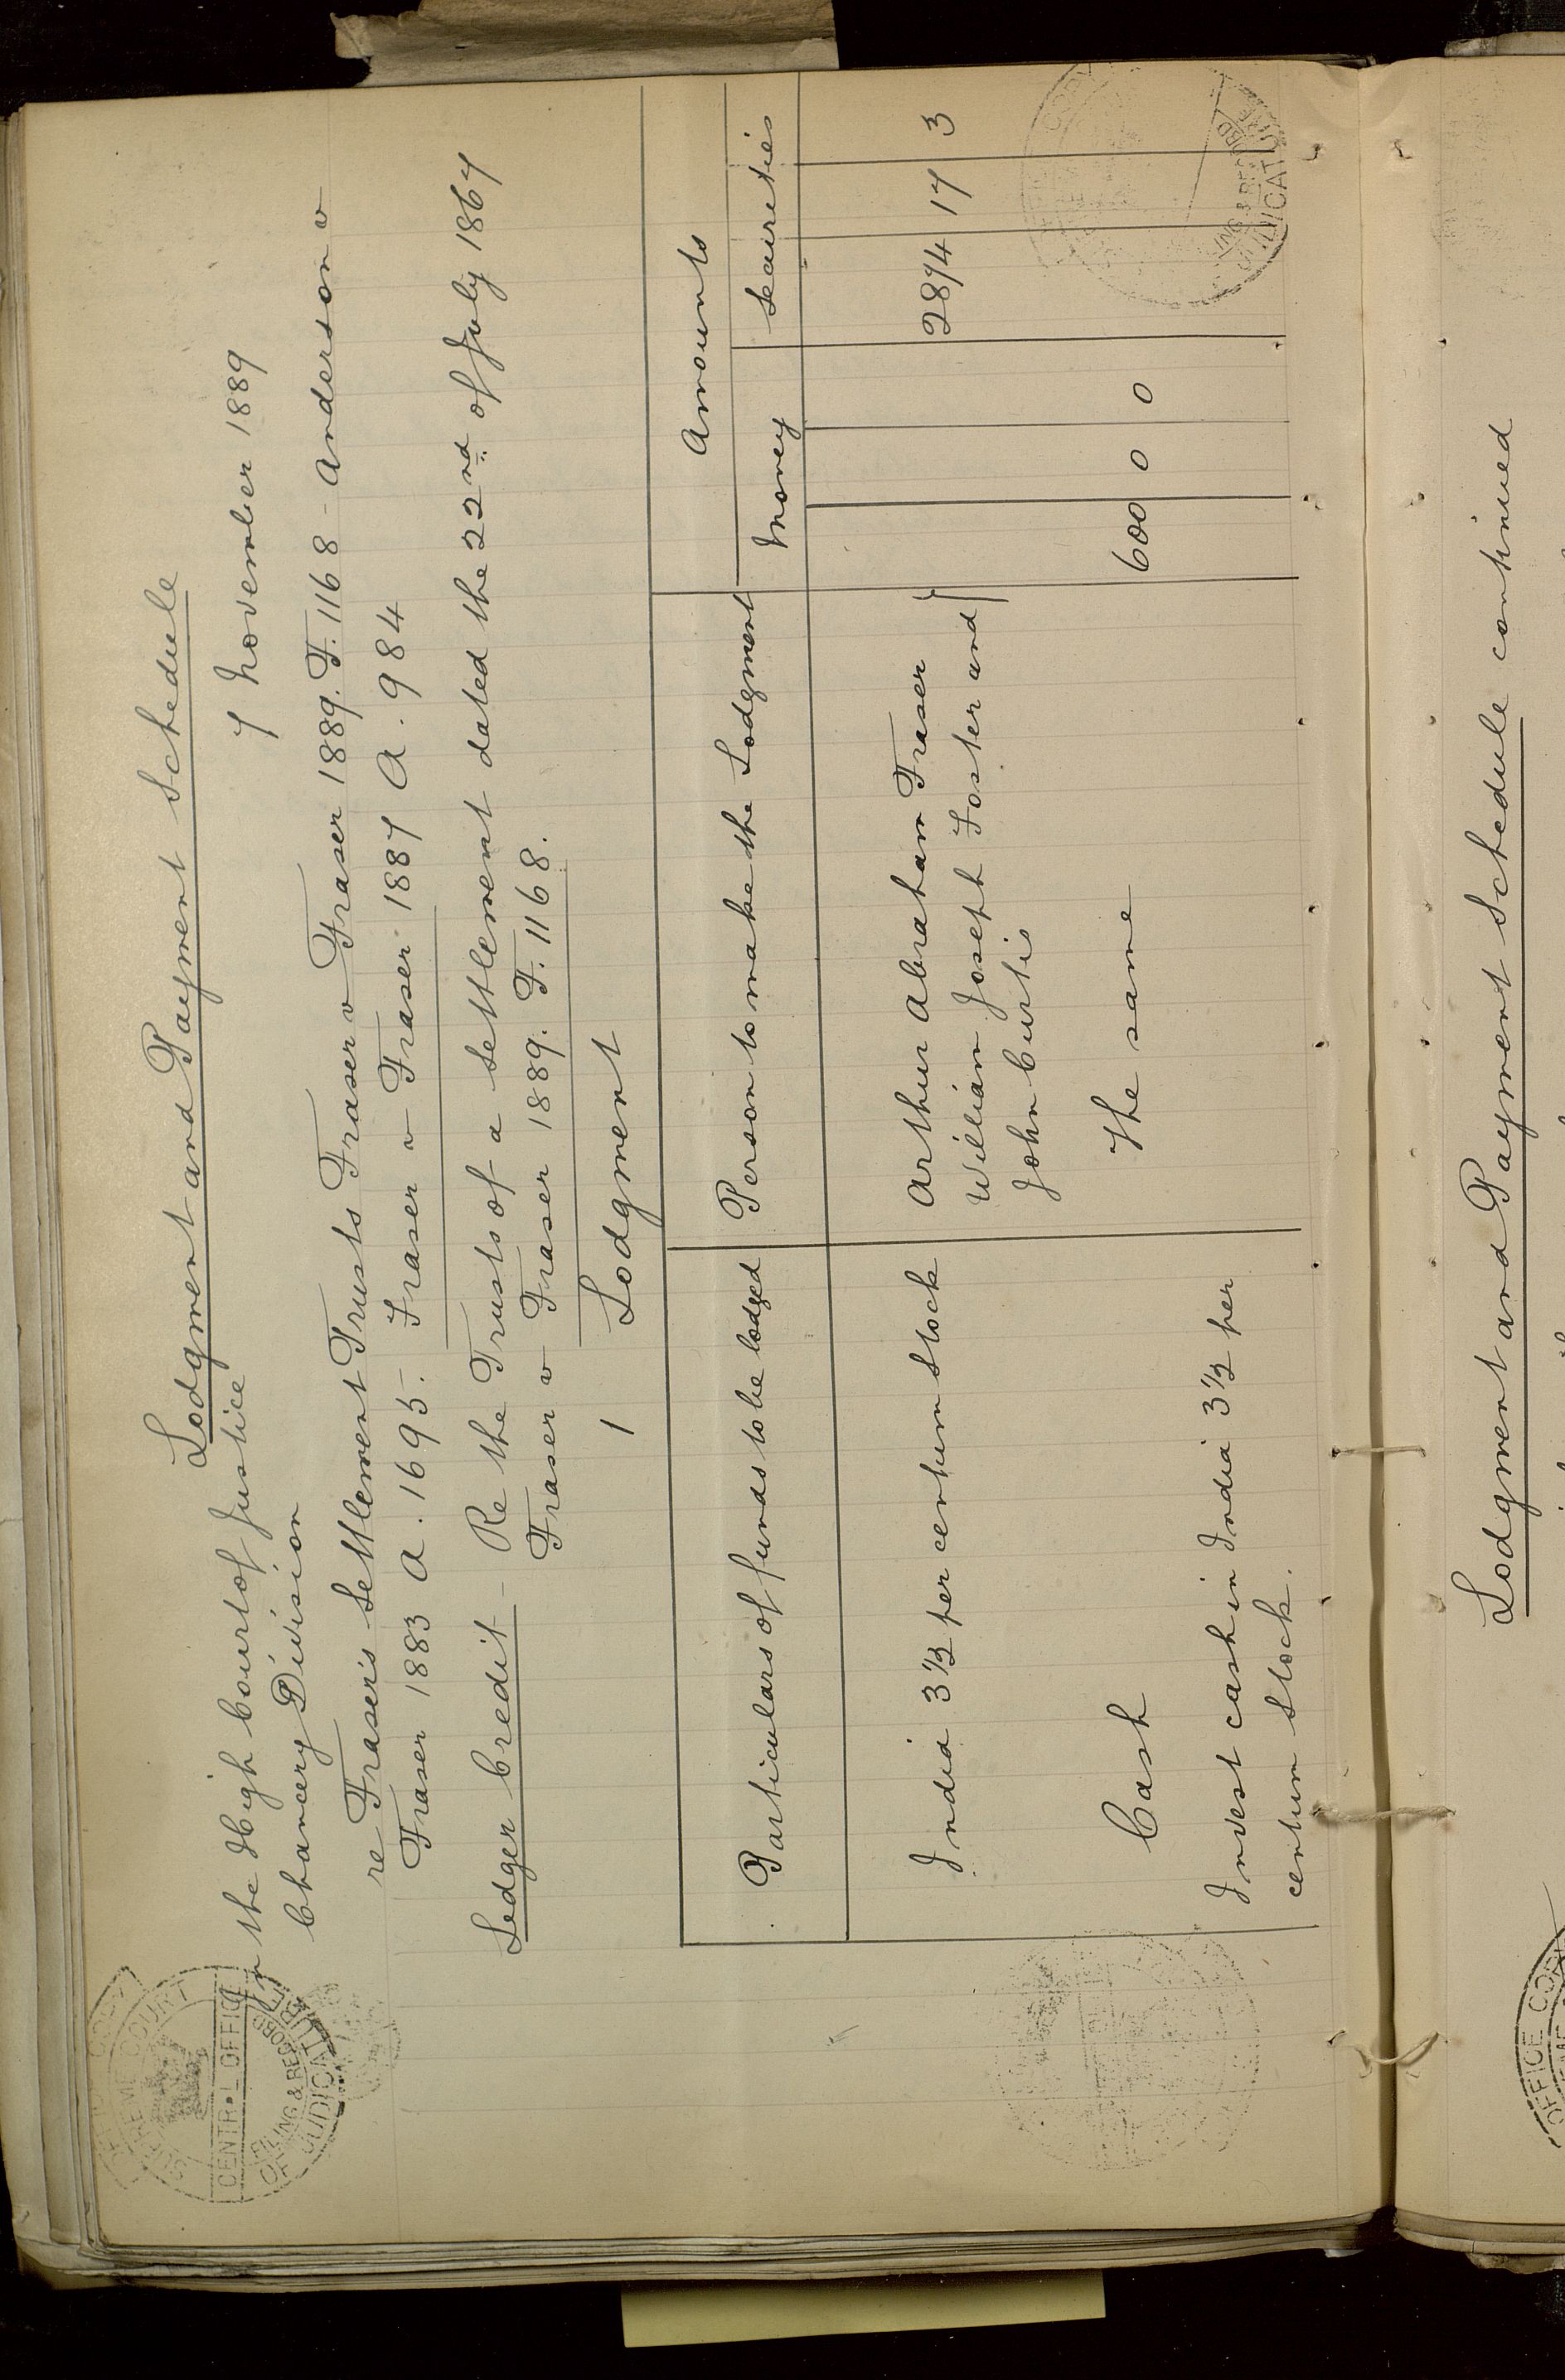 Lodgment and Payment Schedule
In the High Court of Justice
7 November 1889
Chancery Division
re Fraser's Settlement Trusts Fraser v Fraser 1889. F. 1168 - Anderson v
Fraser 1883 A. 1695. Fraser v Fraser 1887 A. 984
Ledger Credit - Re the Trusts of a settlement dated the 22nd of July 1867
Fraser v Fraser 1889. F. 1168.
1 Lodgment
Particulars of funds to be lodged Person to make the Lodgment Amounts
Money Securities
India 3½ per centum Stock Arthur Abraham Fraser 2874 17 3
William Joseph Foster and
John Curtis
Cash The same 600 0 0
Invest cash in India 3½ per
centum Stock.
Lodgment and Payment Schedule continued
SUPREME COURT
CENTRAL OFFICE
FILING & RECORDS
OF JUDICATURE
OFFICE COPY